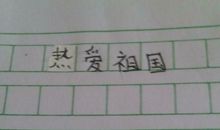 热爱祖国